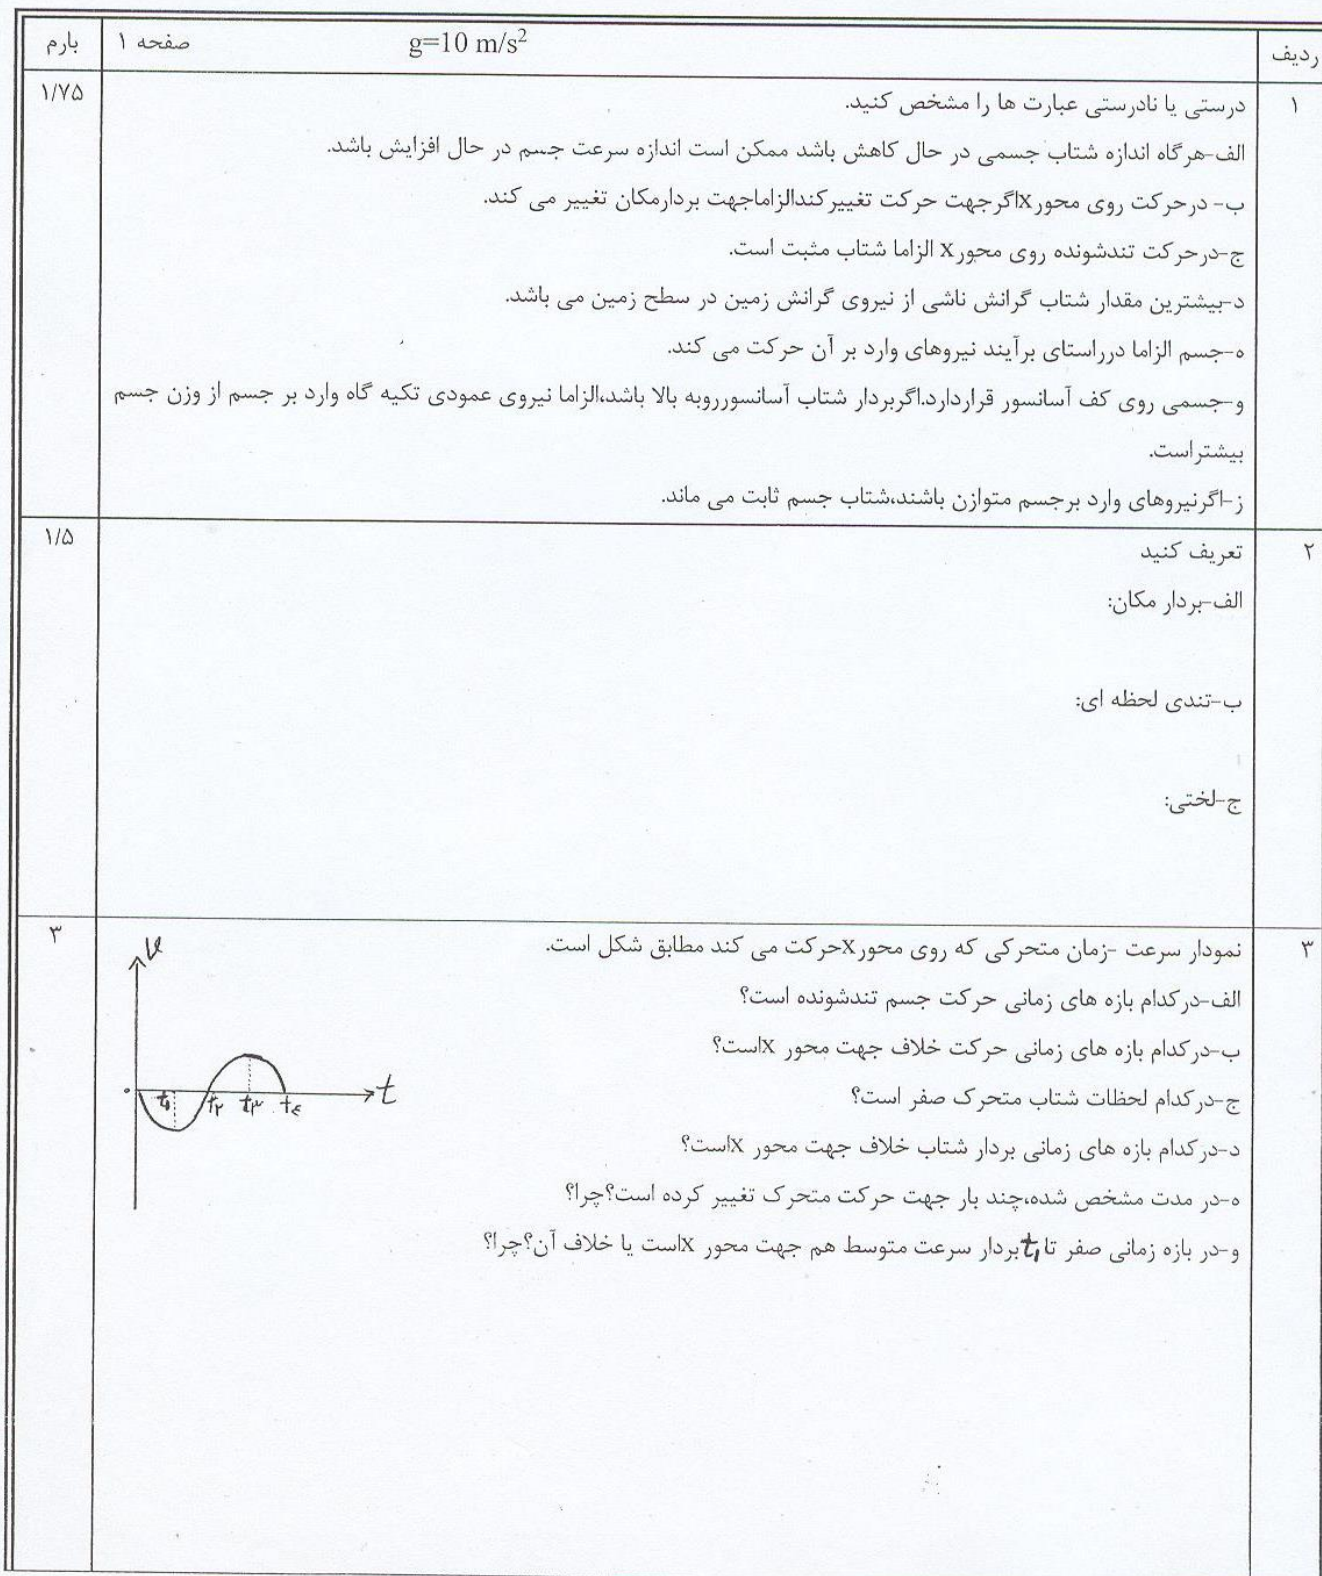 ردیف g=10 m/s² صفحه ۱ بارم
۱ درستی یا نادرستی عبارت ها را مشخص کنید. ۱/۷۵
الف-هرگاه اندازه شتاب جسمی در حال کاهش باشد ممکن است اندازه سرعت جسم در حال افزایش باشد.
ب- درحرکت روی محورxاگرجهت حرکت تغییرکندالزاماجهت بردارمکان تغییر می کند.
ج-درحرکت تندشونده روی محورx الزاما شتاب مثبت است.
د-بیشترین مقدار شتاب گرانش ناشی از نیروی گرانش زمین در سطح زمین می باشد.
ه-جسم الزاما درراستای برآیند نیروهای وارد بر آن حرکت می کند.
و-جسمی روی کف آسانسور قراردارد.اگربردار شتاب آسانسورروبه بالا باشد،الزاما نیروی عمودی تکیه گاه وارد بر جسم از وزن جسم
بیشتراست.
ز-اگرنیروهای وارد برجسم متوازن باشند،شتاب جسم ثابت می ماند.
۲ تعریف کنید ۱/۵
الف-بردار مکان:
ب-تندی لحظه ای:
ج-لختی:
۳ نمودار سرعت -زمان متحرکی که روی محورxحرکت می کند مطابق شکل است. ۳
الف-درکدام بازه های زمانی حرکت جسم تندشونده است؟
ب-درکدام بازه های زمانی حرکت خلاف جهت محور xاست؟
ج-درکدام لحظات شتاب متحرک صفر است؟
د-درکدام بازه های زمانی بردار شتاب خلاف جهت محور xاست؟
ه-در مدت مشخص شده،چند بار جهت حرکت متحرک تغییر کرده است؟چرا؟
و-در بازه زمانی صفر تا t۱ بردار سرعت متوسط هم جهت محور xاست یا خلاف آن؟چرا؟
v
۰ t۱ t۲ t۳ t۴ t